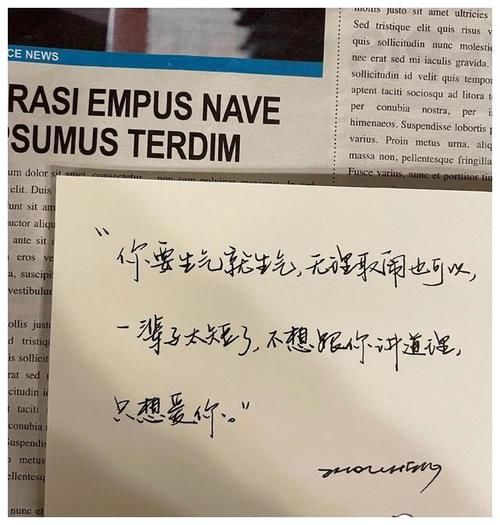 mollis justo sit amet ultricies
Sed tristique elit quis risus
quis sollicitudin nunc molestie
nec erat sed mi iaculis gravida.
sollicitudin id velit quis
aptent taciti sociosqu ad litora
per conubia nostra, per
himenaeos. Suspendisse lobortis
varius. Proin metus urna,
massa non, pellentesque fringilla
Fusce varius, nunc et porttitor
CE NEWS
RASI EMPUS NAVE
PSUMUS TERDIM
um dolor sit amet, consectetur
elit. Duis
unt sit am
uctor aliq
ante sit
eros ve
a, suscipi
vestibulur
ollis just
d tristiqu
is sollicit
rat sed
citudin i
t taciti
conubia
Suspendi
metus
ellentesq
nunc et
“你要生气就生气,无理取闹也可以,
一辈子太短了,不想跟你讲道理,
只想爱你。”